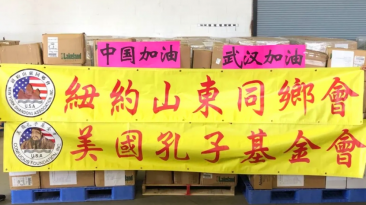 中国加油 武汉加油
紐約山東同鄉會
U.S.A.
美國孔子基金會
U.S.A.